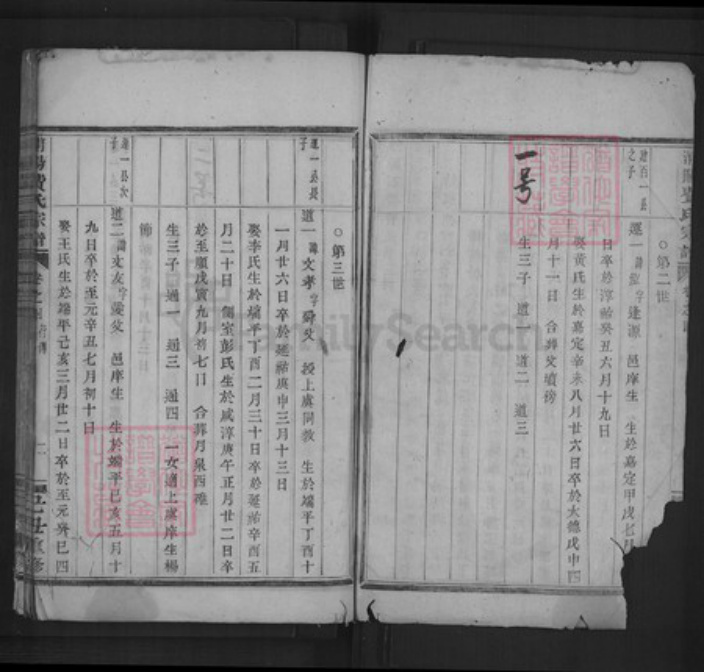 ○第二世
建百一長
之子
遷一諱 字逢源 邑庠生 生於嘉定甲戌七月
日卒於淳祐癸丑六月十九日
娶黃氏生於嘉定辛未八月廿六日卒於大德戊申四
月十一日 合葬父墳傍
生三子 道一 道二 道三
一号
○第三世
遷一公長
子
道一諱文孝字舜父 授上虞同教 生於端平丁酉十
一月廿六日卒於延祐庚申三月十三日
娶李氏生於端平丁酉二月三十日卒於延祐辛酉五
月二十日 側室彭氏生於咸淳庚午正月廿二日卒
於至順戊寅九月初七日 合葬月泉西
生三子 通一 通三 通四 一女適上虞庠生楊
遷一公次
子
道二諱文友字 父 邑庠生 生於端平己亥五月十
九日卒於至元辛丑七月初十日
娶王氏生於端平己亥三月廿二日卒於至元癸巳四
南陽費氏宗譜
FamilySearch